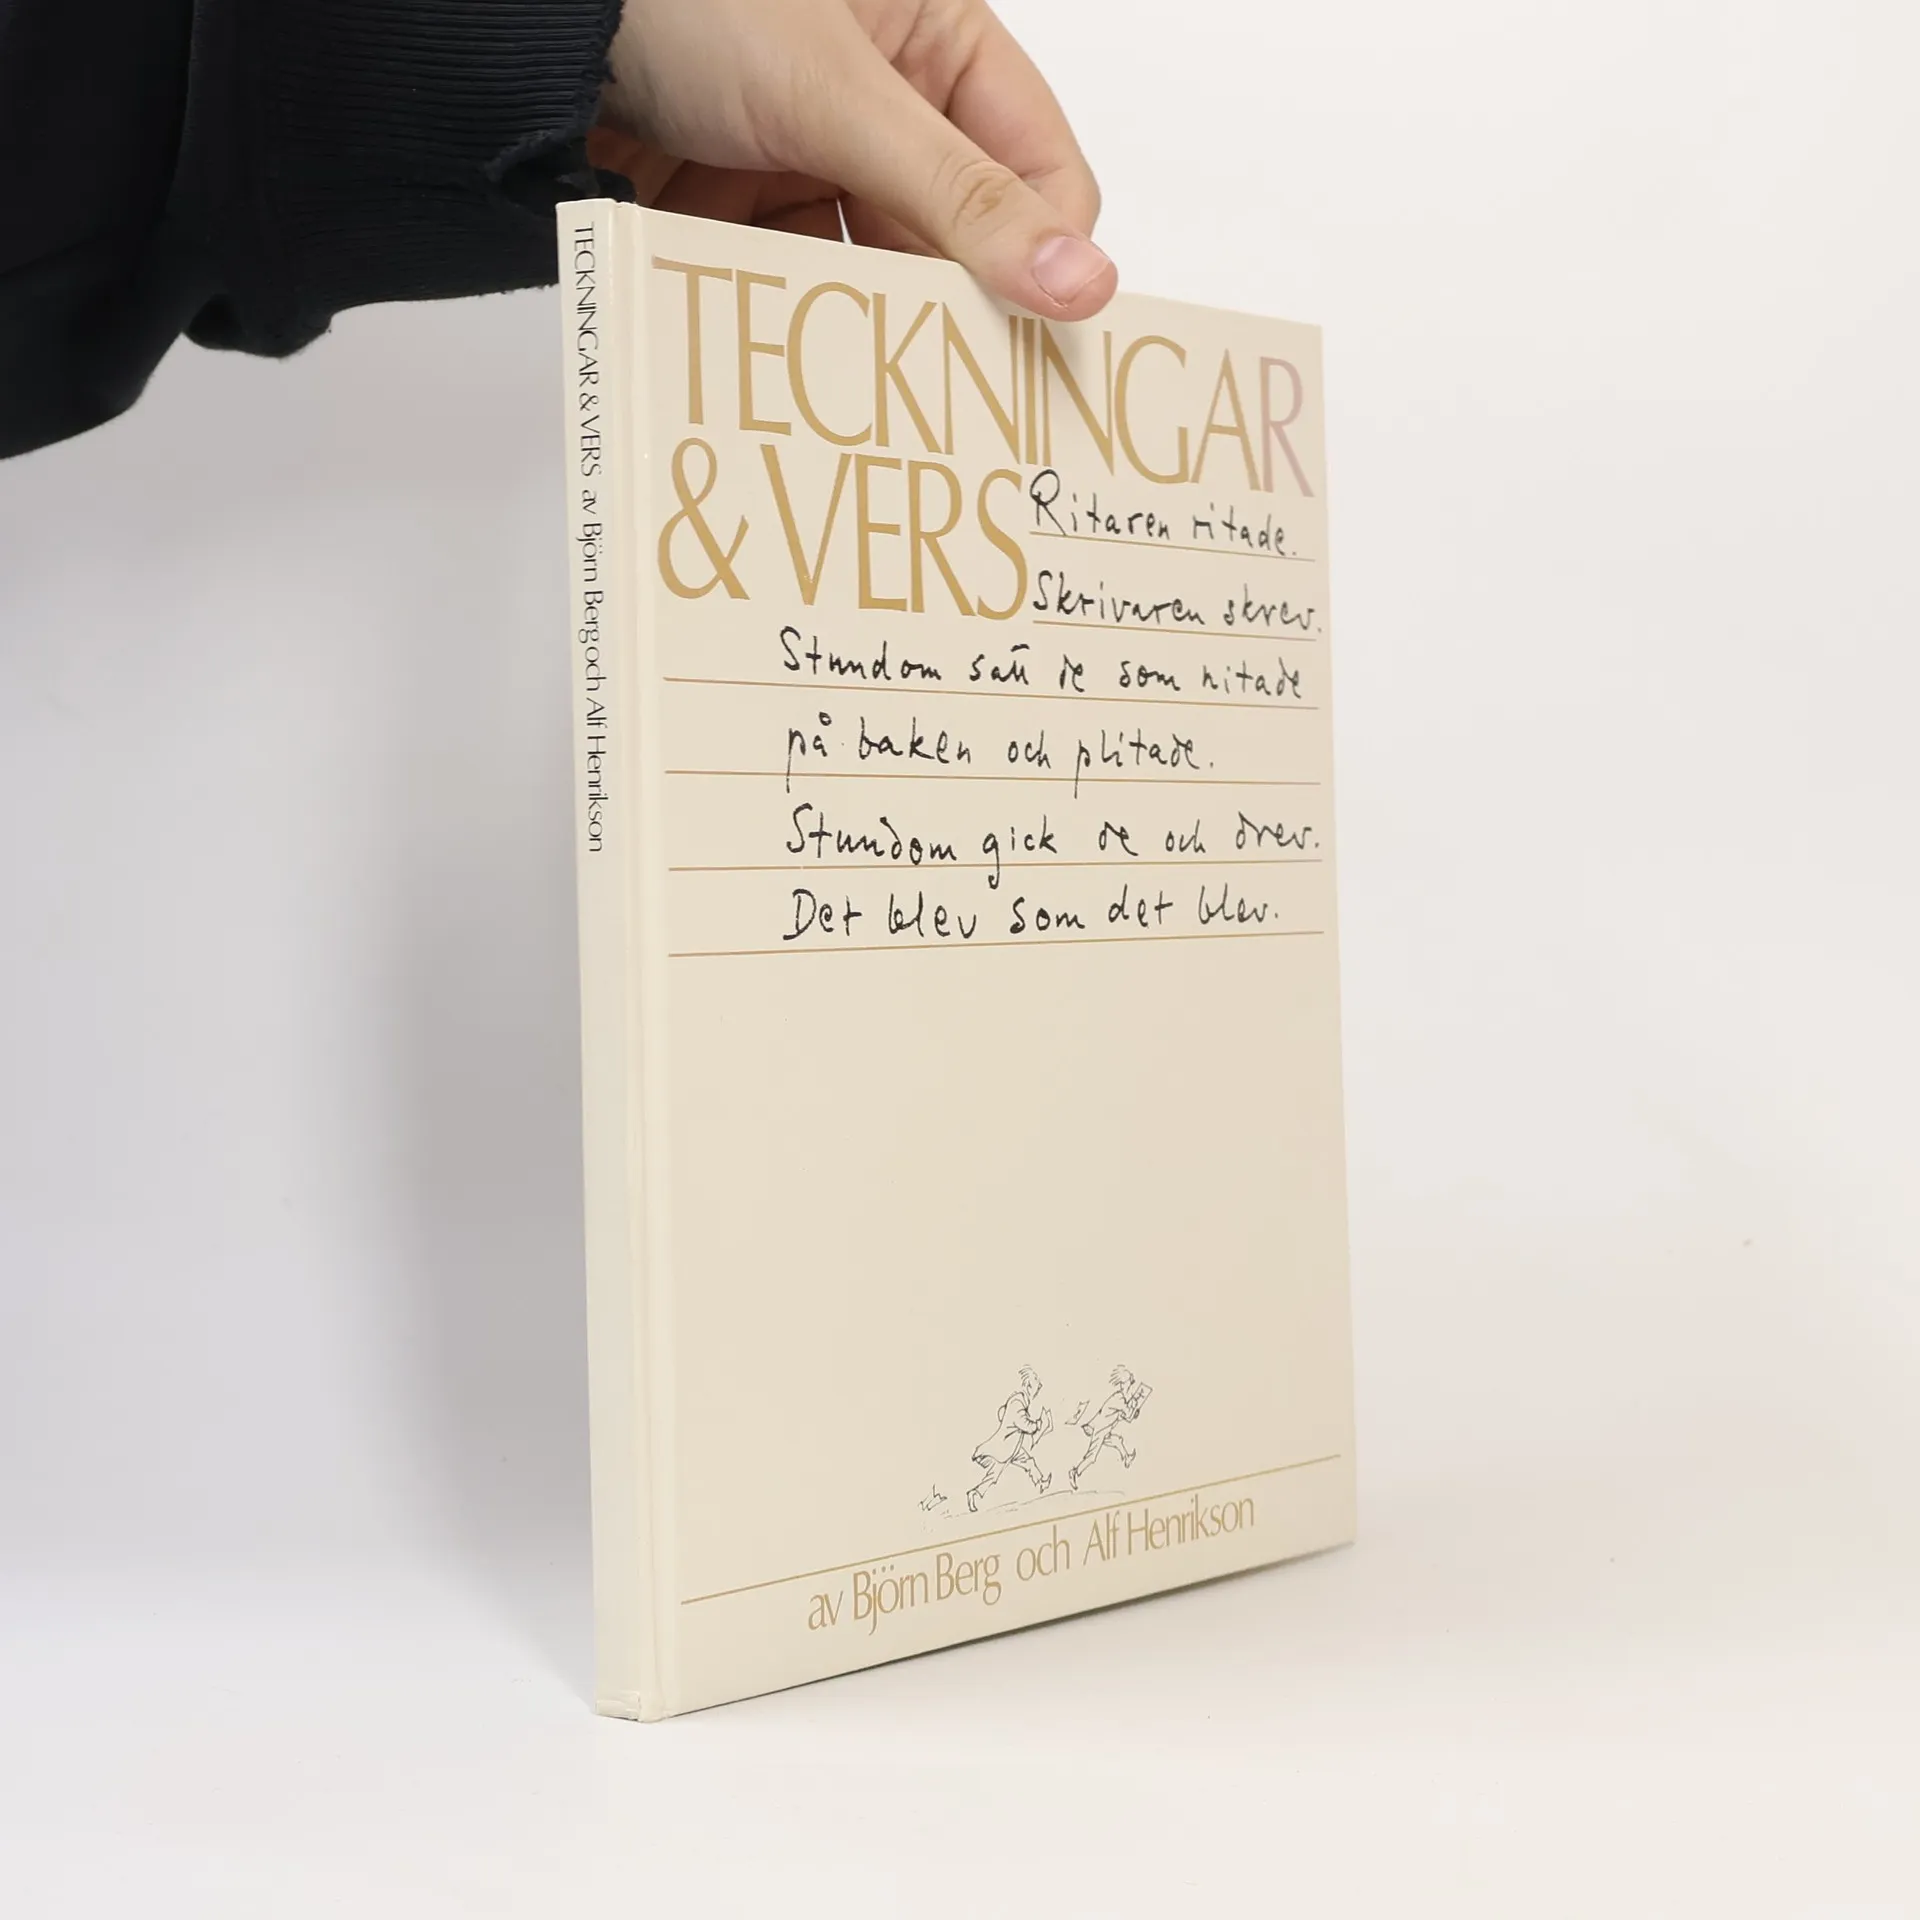 TECKNINGAR & VERS av Björn Berg och Alf Henrikson
TECKNINGAR
& VERS
Ritaren ritade.
Skrivaren skrev.
Stundom satt de som ritade
på baken och plitade.
Stundom gick de och drev.
Det blev som det blev.
av Björn Berg och Alf Henrikson